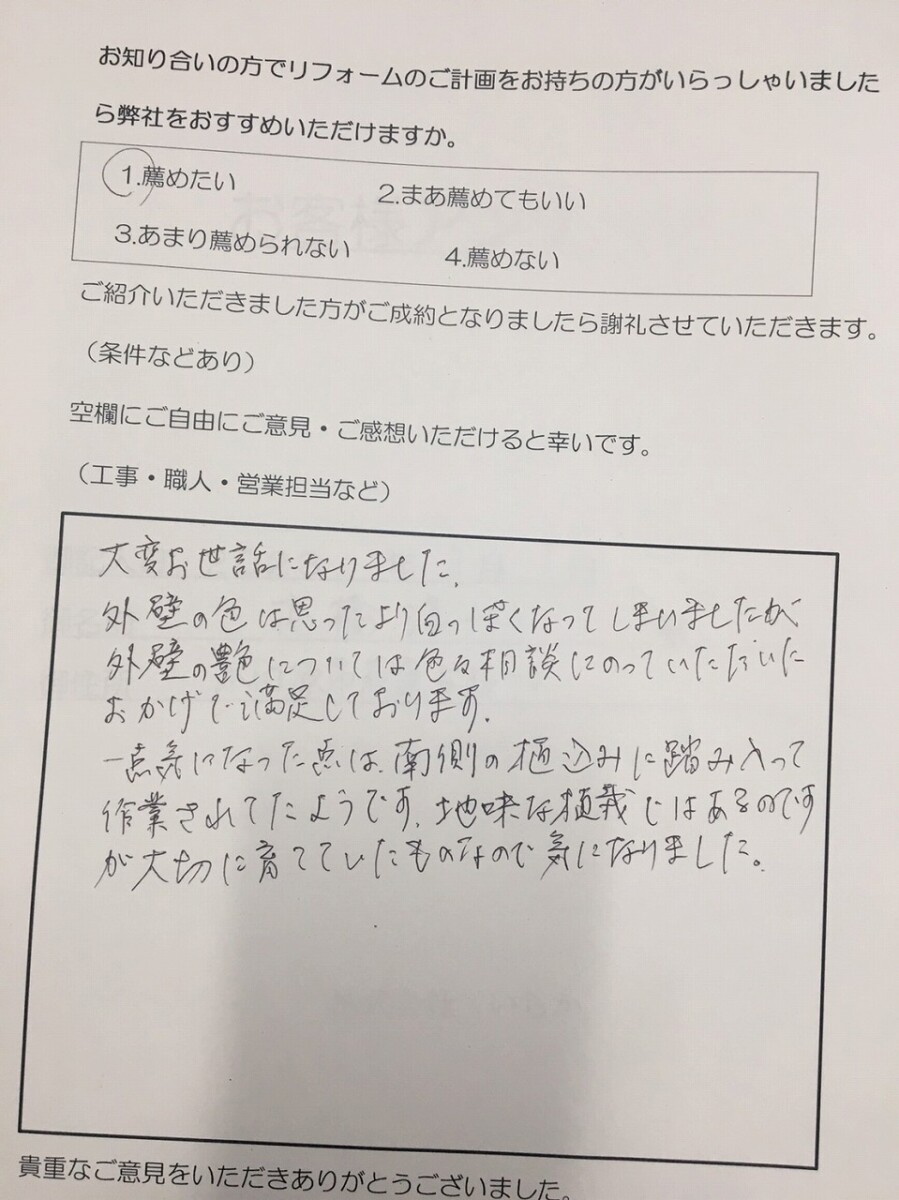 お知り合いの方でリフォームのご計画をお持ちの方がいらっしゃいました
ら弊社をおすすめいただけますか。
1.薦めたい 2.まあ薦めてもいい
3.あまり薦められない 4.薦めない
ご紹介いただきました方がご成約となりましたら謝礼させていただきます。
（条件などあり）
空欄にご自由にご意見・ご感想いただけると幸いです。
（工事・職人・営業担当など）
大変お世話になりました。
外壁の色は思ったより白っぽくなってしまいましたが、
外壁の艶については色々相談にのっていただいた
おかげで満足しております。
一点気になった点は、南側の植込みに踏み入って
作業されてたようです。地味な植栽ではあるのです
が大切に育てていたものなので気になりました。
貴重なご意見をいただきありがとうございました。